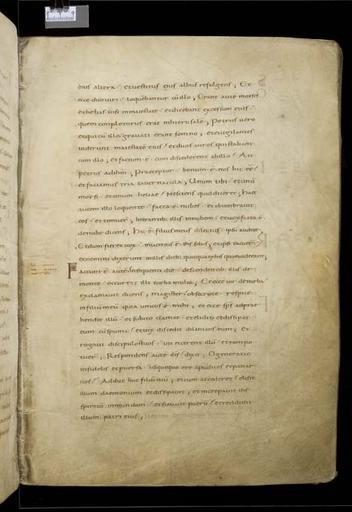 eius altera · et vestitus eius albus refulgens ; Et
ecce duo viri · loquebantur cu illo ; Erant aut moyses
et helias visi in maiestate · et dicebant excessum eius
quem completurus erat in hierusale ; Petrus vero
et qui cu illo gravati erant somno ; et evigilantes
viderunt maiestate eius · et duos viros qui stabant
cum illo ; et factum e cum discederent ab illo · Ait
petrus ad ihm ; Praeceptor · bonum e nos hic ee ·
et faciamus tria tabernacula ; Unum tibi · et unu
moysi · et unum heliae · nesciens quid diceret ; haec
autem illo loquente · facta e nubes · et obumbravit
eos · et timuer intrantib illis in nubem · et vox facta e
de nube dicens ; hic e filius meus dilectus ipsu audite
Et dum fieret vox · inventus e ihs solus ; et ipsi tacuer
et nemini dixerunt in illis dieb quicquam ex his quae viderant
Factum e aute in sequenti die · descendentib illis de
monte · occurrit illi turba multa ; Et ecce vir de turba
exclamavit dicens ; magister · obsecro te respice
in filiu meu quia unicus e mihi ; et ecce sps adprae
hendit illu · et subito clamat · et elidit et dissipat
eum cu spuma · et vix discedit dilanians eum ; Et
rogavi discipulos tuos · ut eicerent illu · et non potu
uer ; Respondens aute ihs dixit ; O generatio
infidelis et perversa usquequo ero apud vos et patiar
vos ; Adduc huc filiu tuu ; et cum accederet · elisit
illum daemonium et dissipavit ; et increpavit ihs
spiritu inmundum · et sanavit pueru · et reddidit
illum patri eius ;